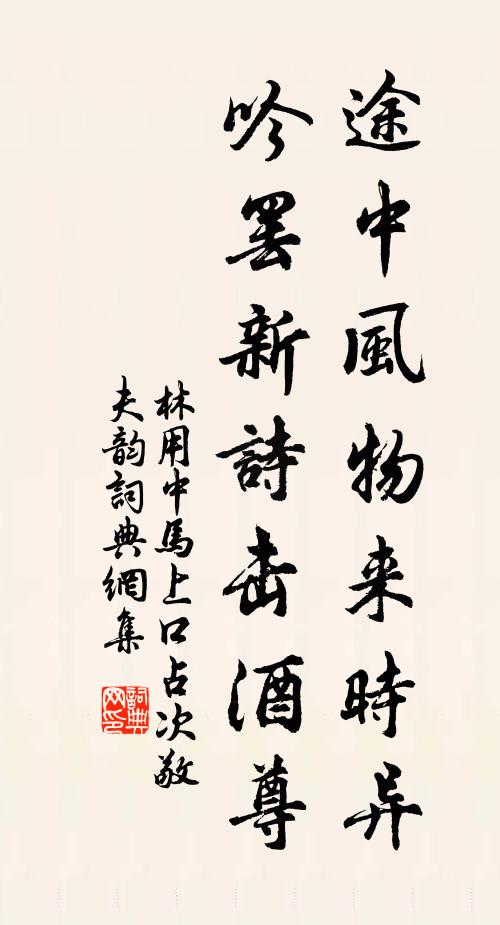 途中風物来時异
吟罢新詩击酒尊
林用中馬上口占次敬
夫韵詞典網集
詞典网印